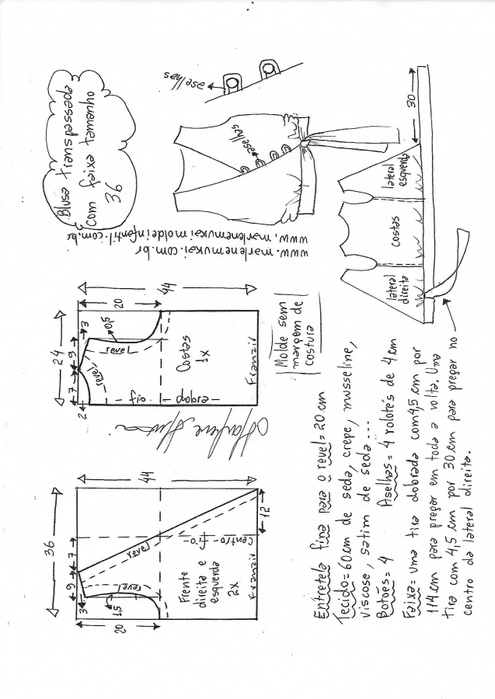 Blusa transpassada
com faixa tamanho
36
aselhas
aselhas
www.marlenemukai.com.br
www.marlenemukaimoldeinfantil.com.br
30
lateral
esquerda
costas
lateral
direita
24
7
9
3
2
20
44
0,5
revel
revel
Costas
1x
Franzir
Molde sem
margem de
costura
36
44
9
7
3
20
1,5
revel
revel
Frente
direita e
esquerda
2x
Centro
Franzir
12
Entretela fina para o revel= 20 cm
Tecido=60cm de seda, crepe, musseline,
viscose, satim de seda...
Botões= 4 Aselhas= 4 rolotês de 4cm
Faixa= uma tira dobrada com4,5 cm por
114cm para pregar em toda a volta. Uma
tira com 4,5 cm por 30 cm para pregar no
centro da lateral direita.